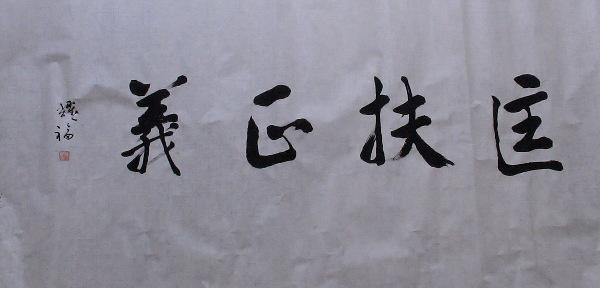 匡扶正義
耀福